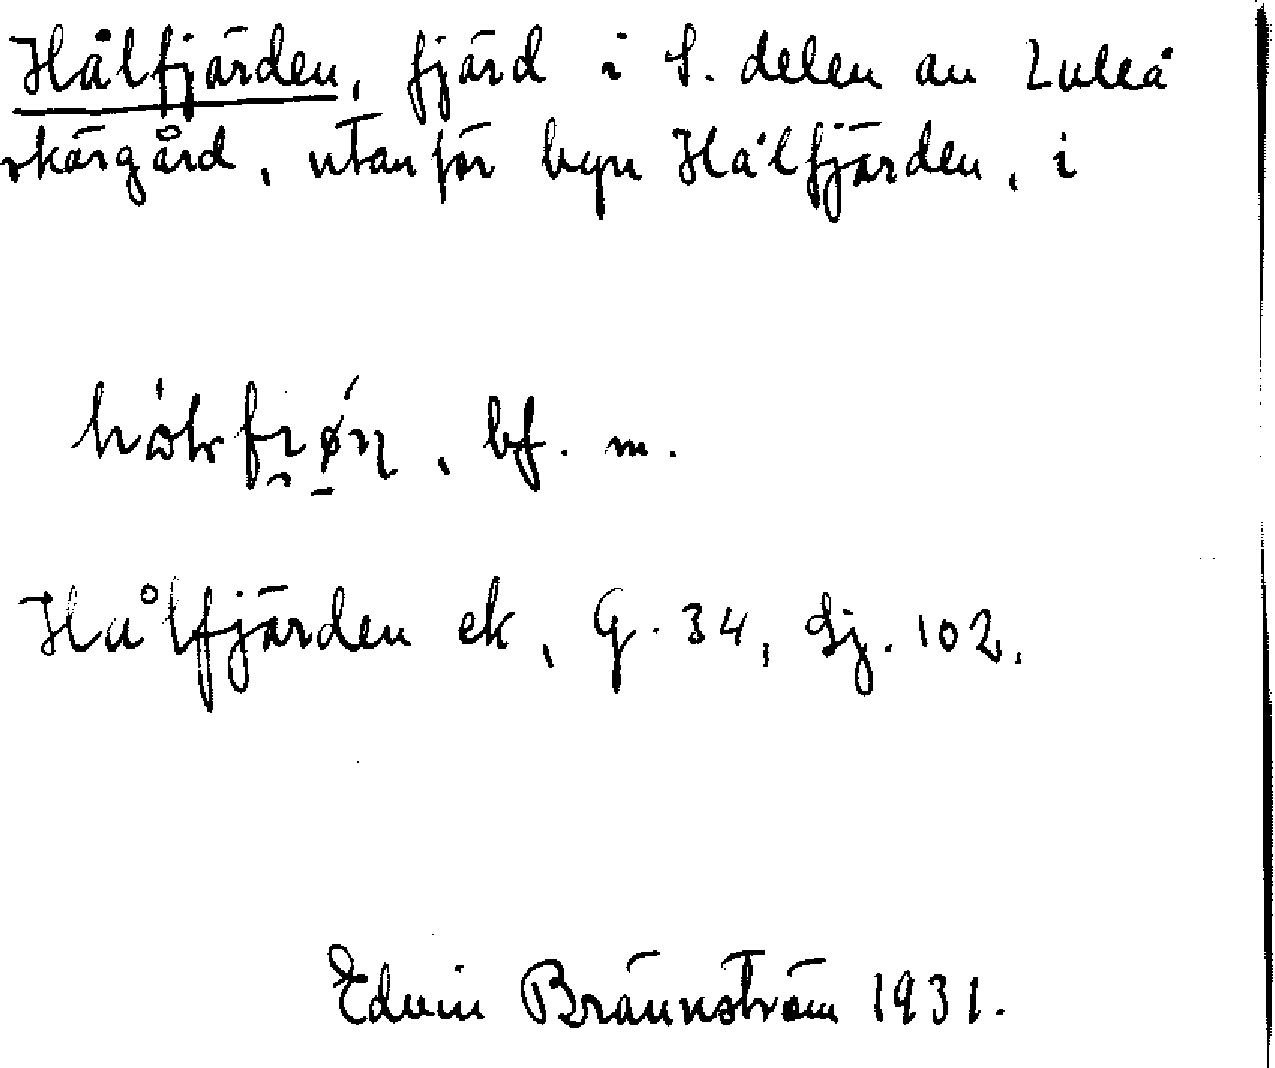 Hålfjärden, fjärd i S. delen av Luleå
skärgård, utanför byn Hålfjärden, i
bf. m.
Hålfjärden ek, G. 34, Sj. 102.
Edvin Brännström 1931.